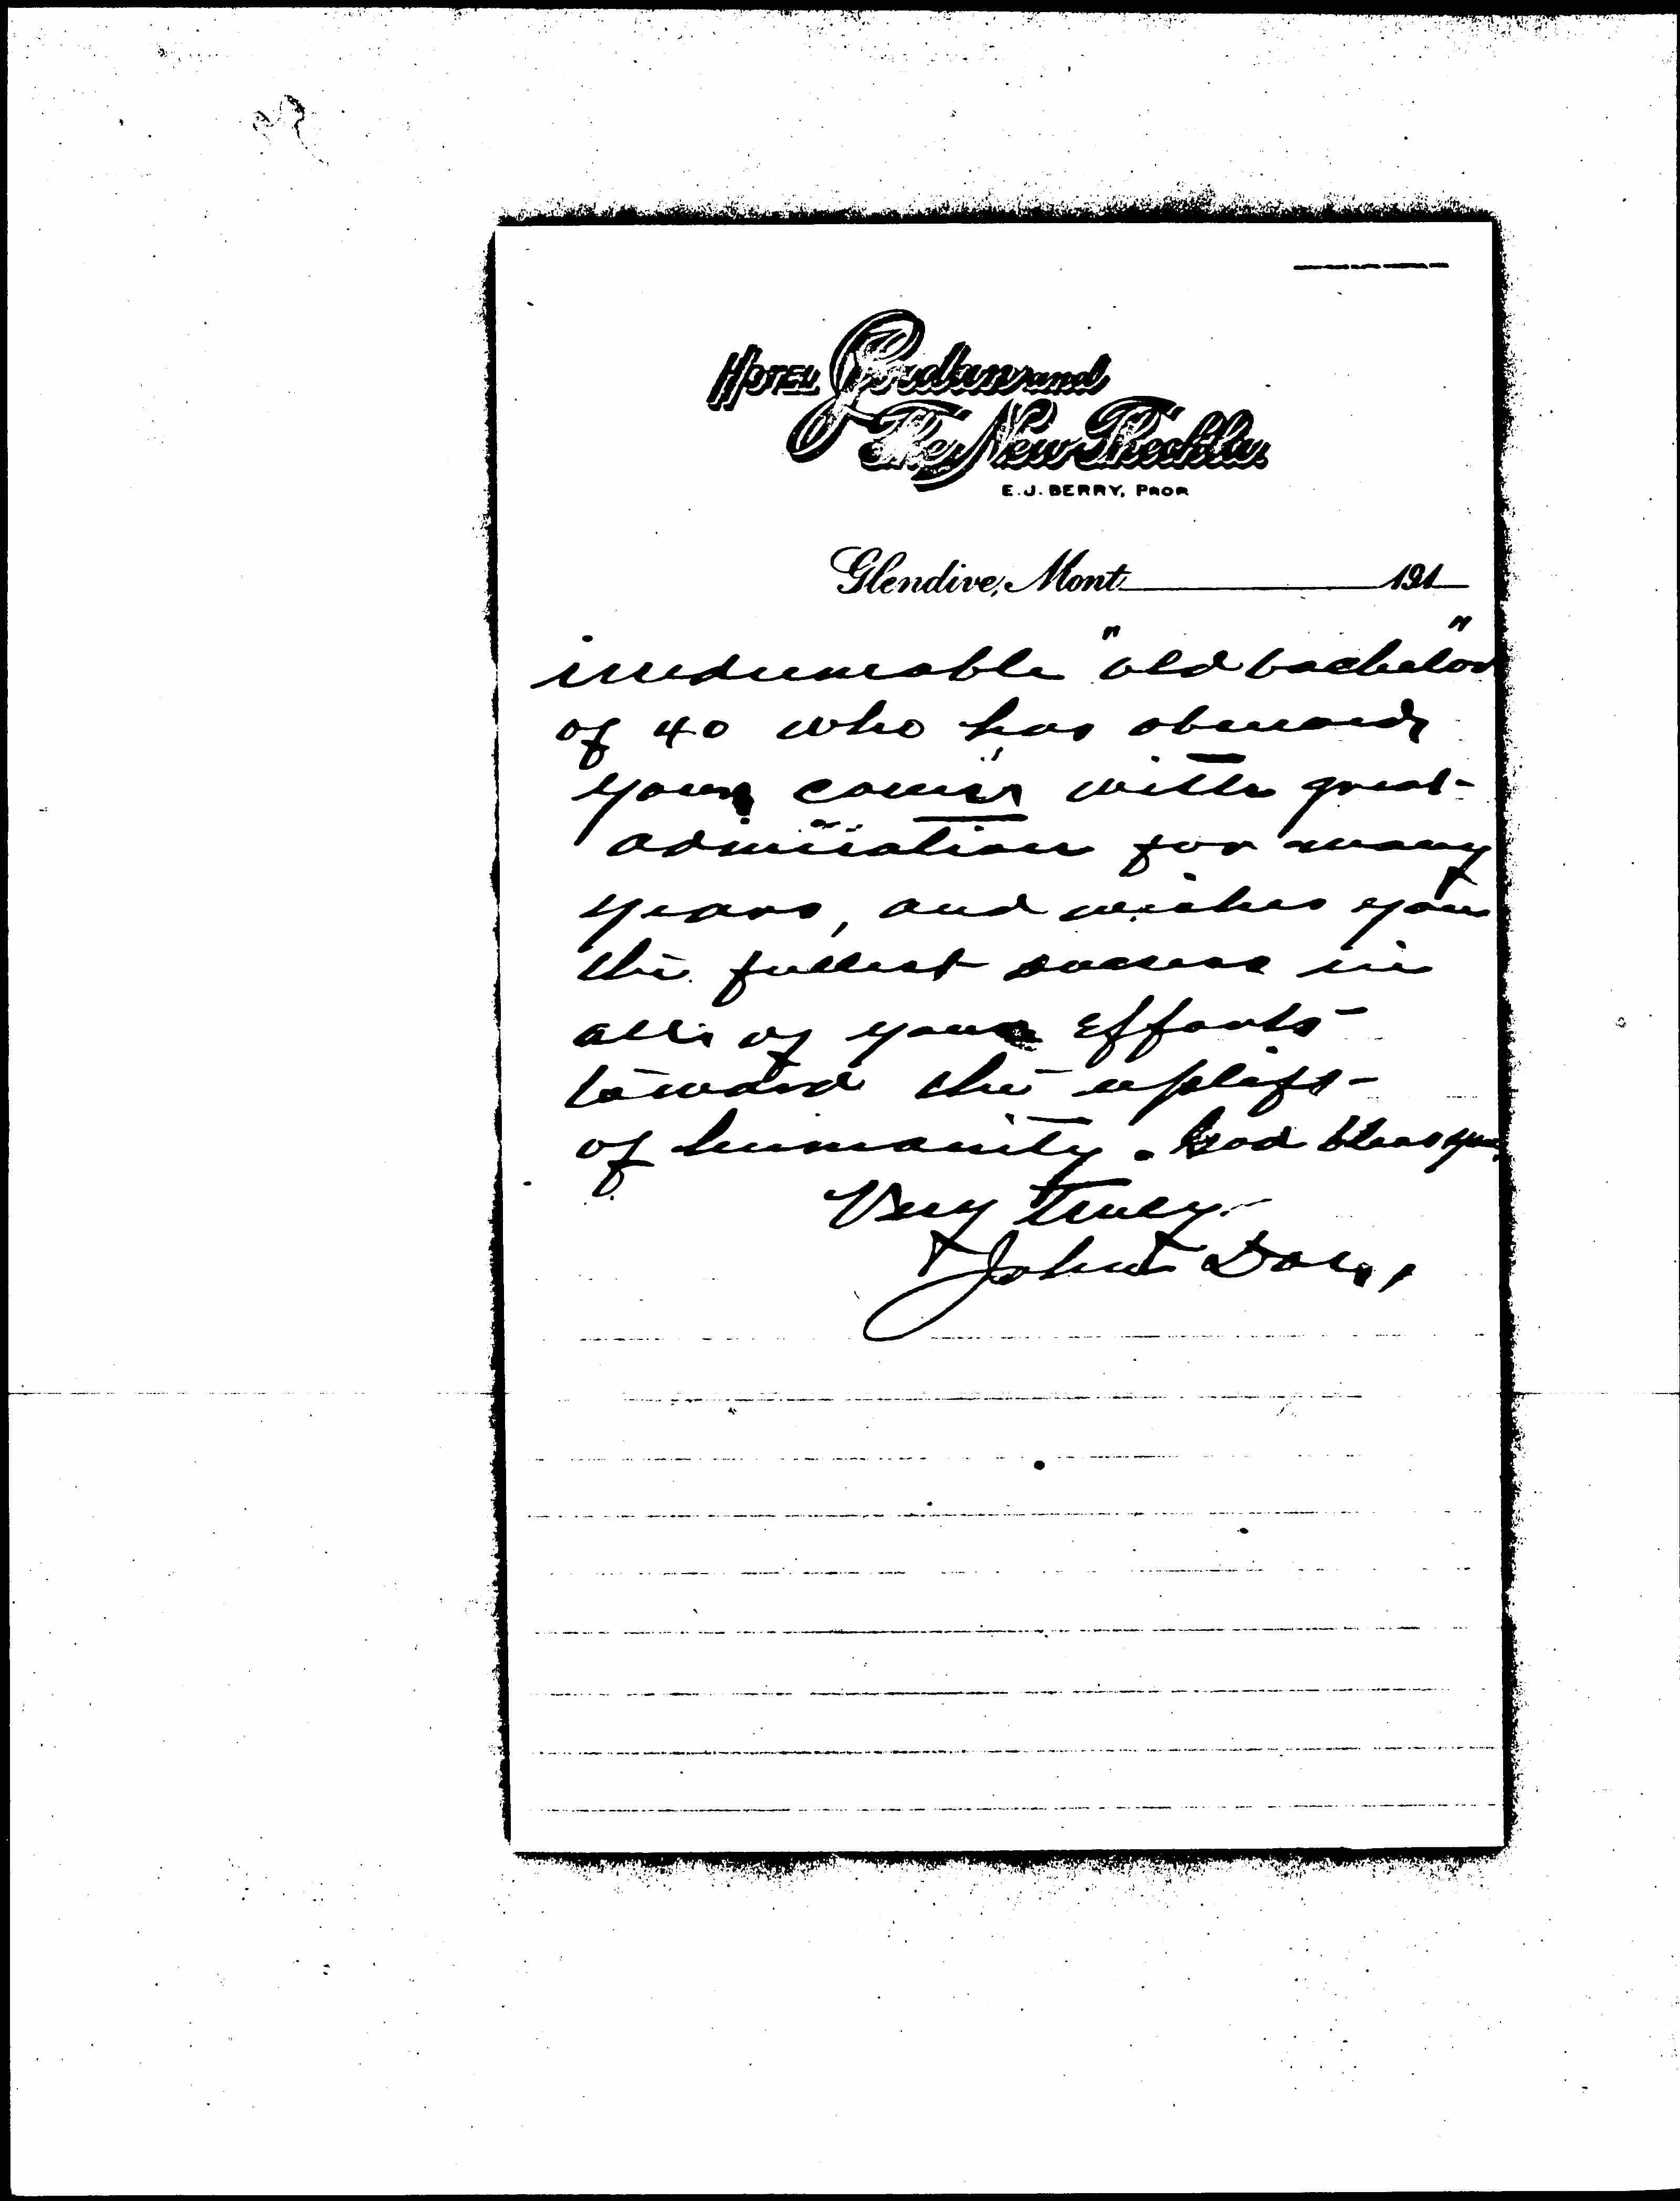 HOTEL Jordan and
The New Thechla
E.J. BERRY, PROP
Glendive, Mont 191
irredeemable "old bachelor"
of 40 who has observed
your career with great
admiration for many
years, and wishes you
the fullest success in
all of your efforts
toward the uplift
of humanity. God bless you
Very truly
John